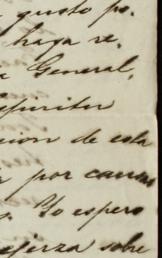 gusto po-
haga re-
General,
Definiter
cion de esta
por causas
Yo espero
ejerza sobre